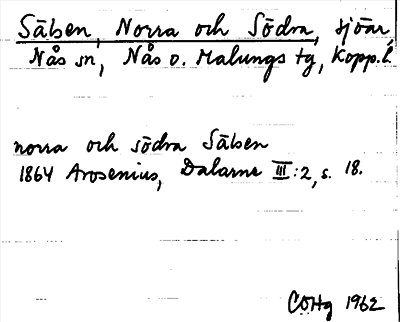 Sälsen, Norra och Södra, sjöar
Nås sn, Nås o. Malungs tg, Kopp. l.
norra och södra Sälsen
1864 Arosenius, Dalarne III:2, s. 18.
COHg 1962